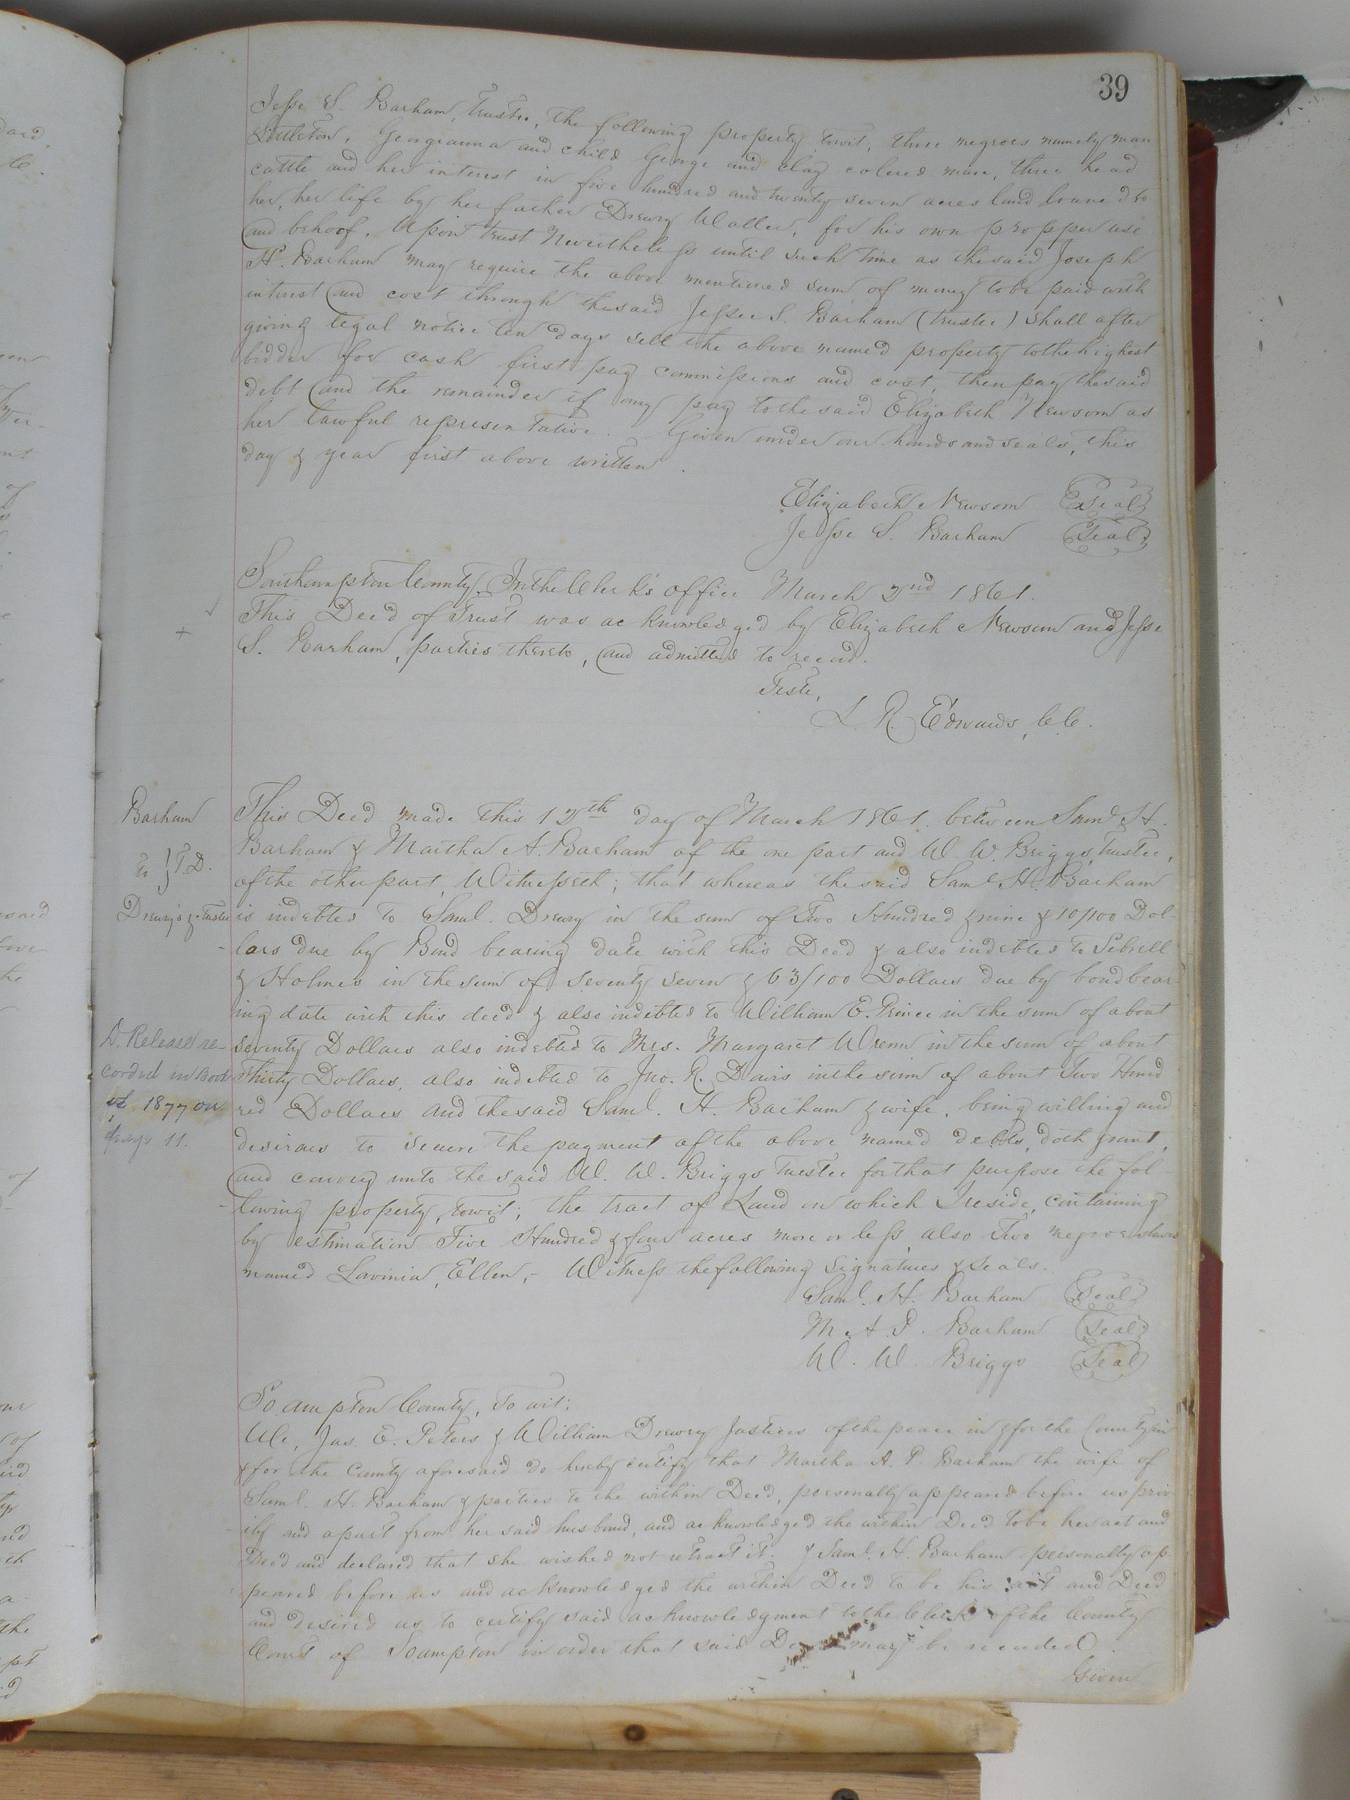 39
Jesse S. Barham, Trustee, the following property, towit, three negroes namely man
Littleton, Georgianna and child George and clay colored mare, three head
cattle and her interest in five hundred and twenty seven acres land loaned to
her, her life by her father Drewry Waller, for his own propper use
and behoof. Upon trust Nevertheless until such time as the said Joseph
H. Barham may require the above mentioned sum of money to be paid with
interest and cost through the said Jesse S. Barham (trustee) shall after
giving legal notice ten days sell the above named property to the highest
bidder for cash first pay commissions and cost, then pay the said
debt and the remainder if any pay to the said Elizabeth Newsom as
her lawful representative. Given under our hands and seals, this
day & year first above written.
Elizabeth Newsom Seal
Jesse S. Barham Seal
Southampton County, In the Clerk's office March 2nd 1861.
This Deed of Trust was acknowledged by Elizabeth Newsom and Jesse
S. Barham, parties thereto, and admitted to record.
Teste,
L. R. Edwards, C.C.
Barham
to } T.D.
Drewry's Trustee
This Deed made this 12th day of March 1861. between Saml. H.
Barham & Martha A. Barham of the one part and W. W. Briggs, Trustee,
of the other part, Witnesseth; that whereas the said Saml. H. Barham
is indebted to Saml. Drewry in the sum of Two Hundred & nine & 10/100 Dol-
lars due by Bond bearing date with this Deed & also indebted to Sebrell
& Holmes in the sum of seventy seven & 63/100 Dollars due by bond bear-
ing date with this deed & also indebted to William E. Prince in the sum of about
seventy Dollars also indebted to Mrs. Margaret Wrenn in the sum of about
Thirty Dollars, also indebted to Jno. R. Davis in the sum of about Two Hund
red Dollars and the said Saml. H. Barham & wife, being willing and
desirous to secure the payment of the above named debts, doth grant,
and convey unto the said W. W. Briggs Trustee for that purpose the fol-
lowing property, towit; the tract of Land on which I reside, containing
by estimation Five Hundred & four acres more or less, also Two negroe slaves
named Lavinia, Ellen,- Witness the following signatures & seals.
A. Release re-
corded in Book
1877 on
page 11.
Saml. H. Barham Seal
M. A. P. Barham Seal
W. W. Briggs Seal
So.ampton County, To wit:
We, Jas. E. Peters & William Drewry Justices of the peace in & for the County in
& for the County aforesaid do hereby certify that Martha A. P. Barham the wife of
Saml. H. Barham & parties to the within Deed, personally appeared before us priv
ily and apart from her said husband, and acknowledged the within Deed to be her act and
Deed and declared that she wished not retract it. & Saml. H. Barham personally ap
peared before us and acknowledged the within Deed to be his act and Deed
and desired us to certify said acknowledgment to the Clerk of the County
Court of Soampton in order that said Deed may be recorded.
Given